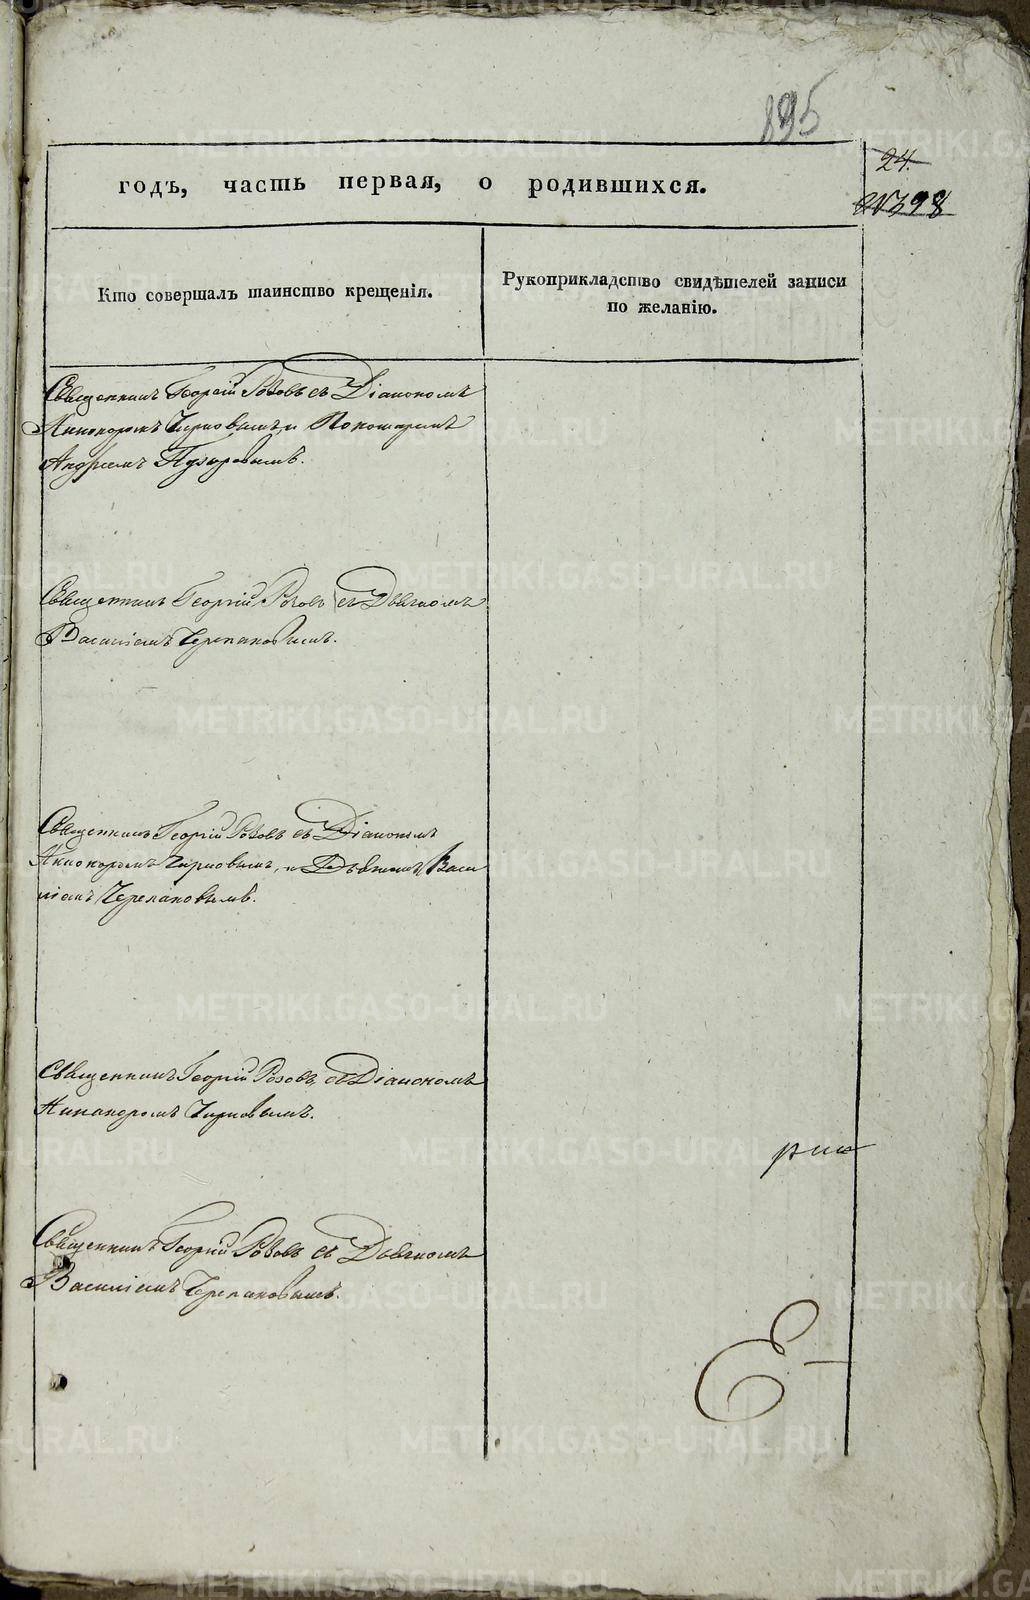 895
24.
№398
годъ, часть первая, о родившихся.
Кто совершалъ таинство крещенія.
Рукоприкладство свидѣтелей записи
по желанію.
Священникъ Георгій Розовъ съ Діакономъ
Никаноромъ Черновымъ, и Пономаремъ
Андреемъ Пузыревымъ.
Священникъ Георгій Розовъ съ Дьячкомъ
Василіемъ Черепановымъ.
Священникъ Георгій Розовъ съ Діакономъ
Никаноромъ Черновымъ, и Дьячкомъ Васи
ліемъ Черепановымъ.
Священникъ Георгій Розовъ съ Діакономъ
Никаноромъ Черновымъ.
Священникъ Георгій Розовъ съ Дьячкомъ
Василіемъ Черепановымъ.
METRIKI.GASO-URAL.RU